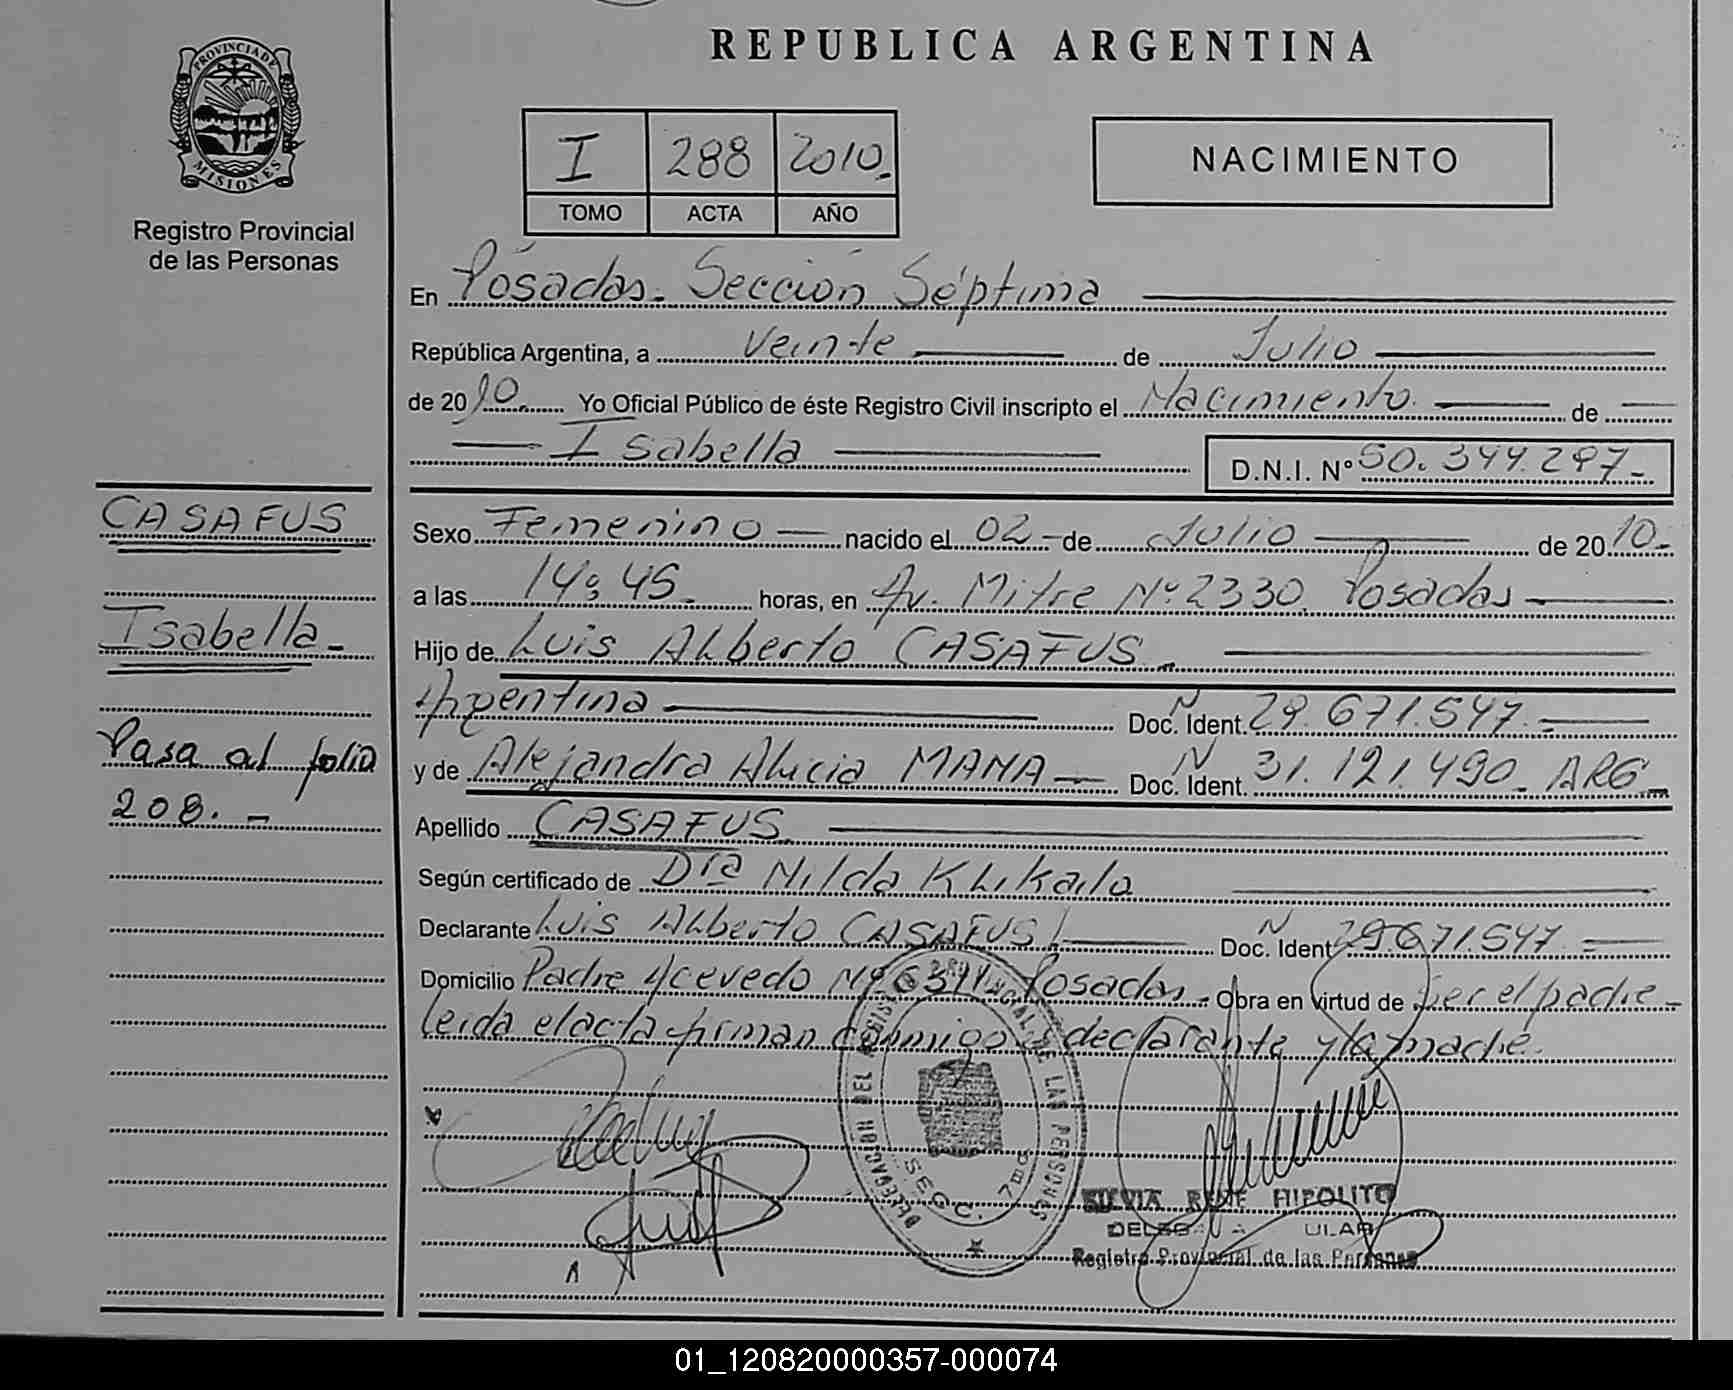 REPUBLICA ARGENTINA
PROVINCIA DE MISIONES
Registro Provincial
de las Personas
I 288 2010
TOMO ACTA AÑO
NACIMIENTO
En Posadas. Sección Séptima
República Argentina, a Veinte de Julio
de 2010. Yo Oficial Público de éste Registro Civil inscripto el Nacimiento de
Isabella
D.N.I. Nº 50.399.297-
CASAFUS
Isabella-
Pasa al folio
208.-
Sexo Femenino nacido el 02 de Julio de 2010-
a las 14:45 horas, en Av. Mitre Nº 2330. Posadas
Hijo de Luis Alberto CASAFUS
Argentina Doc. Ident. N 29.671.547.=
y de Alejandra Alicia MANA Doc. Ident. N 31.121.490- ARG-
Apellido CASAFUS
Según certificado de Dra Nilda
Declarante Luis Alberto CASAFUS Doc. Ident N 29671.547.=
Domicilio Padre Acevedo Nº Posadas - Obra en virtud de ser el padre-
leida el acta firman conmigo declarante y la madre.
DELEGACION DEL REGISTRO PROVINCIAL DE LAS PERSONAS
SECC. 7ma
SILVIA RENE HIPOLITO
Registro Provincial de las Personas
01_120820000357-000074